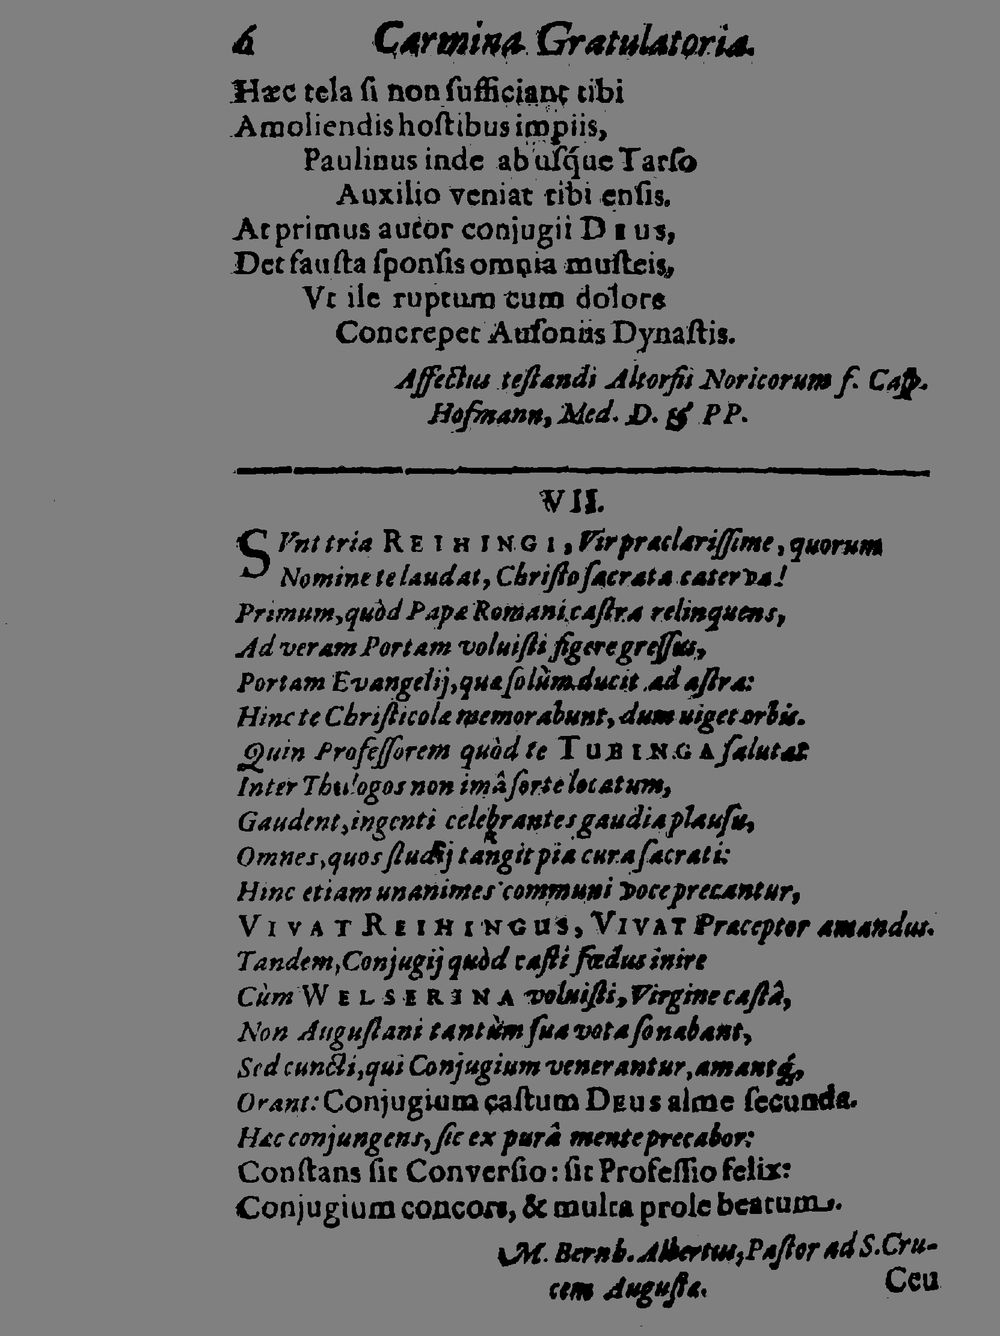 6 Carmina Gratulatoria.
Hæc tela ſi non ſufficiant tibi
Amoliendis hoſtibus impiis,
Paulinus inde ab uſq́ue Tarſo
Auxilio veniat tibi enſis.
At primus autor conjugii DEUS,
Det fauſta ſponſis omnia muſteis,
Vt ile ruptum cum dolore
Concrepet Auſoniis Dynaſtis.
Affectus teſtandi Altorfii Noricorum f. Caſp.
Hofmann, Med. D. & PP.
VII.
SVnt tria REIHINGI, Vir præclariſſime, quorum
Nomine te laudat, Chriſto ſacrata caterva!
Primum, quòd Papæ Romani caſtra relinquens,
Ad veram Portam voluiſti figere greſſus,
Portam Evangelij, quæ ſolùm ducit ad aſtra:
Hinc te Chriſticolæ memorabunt, dum uiget orbis.
Quin Profeſſorem quòd te TUBINGA ſalutat
Inter Theologos non imâ ſorte locatum,
Gaudent, ingenti celebrantes gaudia plauſu,
Omnes, quos ſtudij tangit pia cura ſacrati:
Hinc etiam unanimes communi voce precantur,
VIVAT REIHINGUS, VIVAT Præceptor amandus.
Tandem, Conjugij quòd caſti fœdus inire
Cùm WELSERINA voluiſti, Virgine caſtâ,
Non Auguſtani tantùm ſua vota ſonabant,
Sed cuncti, qui Conjugium venerantur, amantq́,
Orant: Conjugium caſtum DEUS alme ſecunda.
Hæc conjungens, ſic ex purâ mente precabor:
Conſtans ſit Converſio: ſit Profeſſio felix:
Conjugium concors, & multa prole beatum.
M. Bernh. Albertus, Paſtor ad S. Cru-
cem Auguſtæ.
Ceu